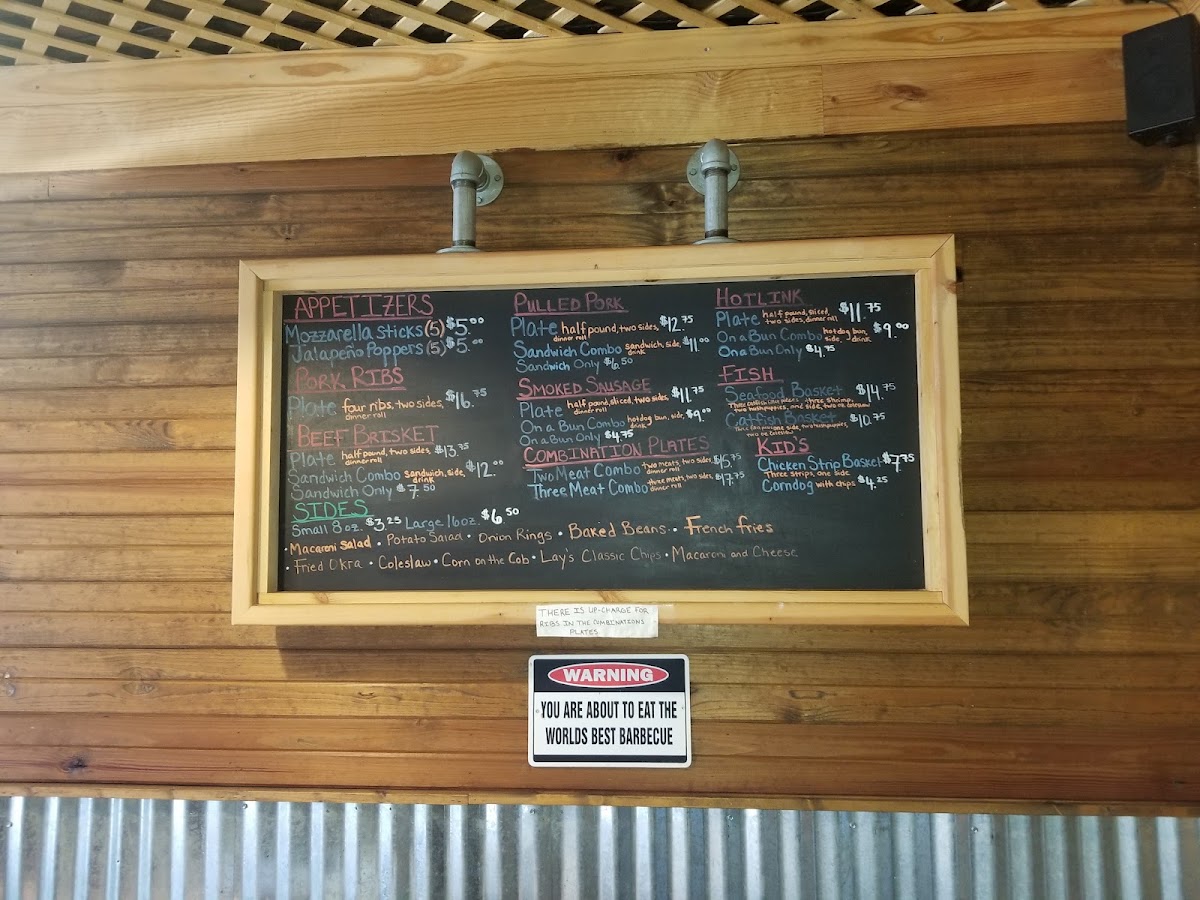 APPETIZERS
Mozzarella Sticks (5) $5.00
Jalapeño Poppers (5) $5.00
PORK RIBS
Plate four ribs, two sides, dinner roll $16.75
BEEF BRISKET
Plate half pound, two sides, dinner roll $13.75
Sandwich Combo sandwich, side, drink $12.00
Sandwich Only $7.50
PULLED PORK
Plate half pound, two sides, dinner roll $12.75
Sandwich Combo sandwich, side, drink $11.00
Sandwich Only $6.50
SMOKED SAUSAGE
Plate half pound, sliced, two sides, dinner roll $11.75
On a Bun Combo hotdog bun, side, drink $9.00
On a Bun Only $4.75
COMBINATION PLATES
Two Meat Combo two meats, two sides, dinner roll $15.75
Three Meat Combo three meats, two sides, dinner roll $17.75
HOTLINK
Plate half pound, sliced, two sides, dinner roll $11.75
On a Bun Combo hotdog bun, side, drink $9.00
On a Bun Only $4.75
FISH
Seafood Basket $14.75
three shrimp,
two hushpuppies, one side, two oz coleslaw
Catfish Basket $10.75
one side, two hushpuppies,
two oz coleslaw
KID'S
Chicken Strip Basket $7.75
Three strips, one side
Corndog with chips $4.25
SIDES
Small 8 oz. $3.25 Large 16oz. $6.50
• Macaroni Salad • Potato Salad • Onion Rings • Baked Beans • French fries
• Fried Okra • Coleslaw • Corn on the Cob • Lay's Classic Chips • Macaroni and Cheese
THERE IS UP-CHARGE FOR
RIBS IN THE COMBINATIONS
PLATES
WARNING
YOU ARE ABOUT TO EAT THE
WORLDS BEST BARBECUE